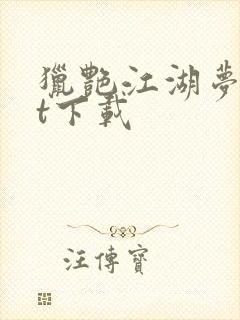 獵艷江湖夢
t下載
汪傳寶